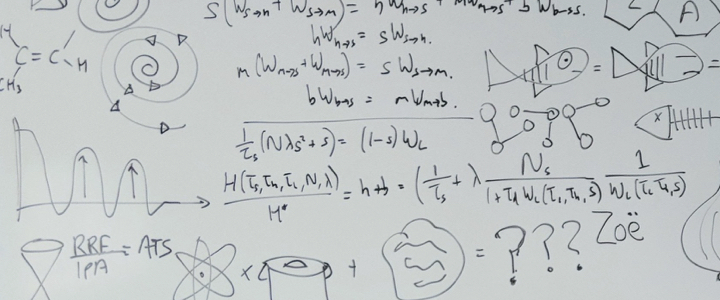 S(W_{S→h} + W_{S→m}) = hW_{h→s} + mW_{m→s} + bW_{b→s}.
A
hW_{h→s} = sW_{s→h}.
H
C=C
H
CH₃
m(W_{m→s} + W_{m→b}) = sW_{s→m}.
=
=
bW_{b→s} = mW_{m→b}.
x
1/τ_s (Nλs² + s) = (1-s)W_L
H(τ_s, τ_h, τ_L, N, λ) / H* = h+b = (1/τ_s + λ N_s / 1+τ_λ W_L(τ_L, τ_h, s) 1 / W_L(τ_L, τ_h, s)
RRF / IPA = ATS
x + = ? ? ? Zoë